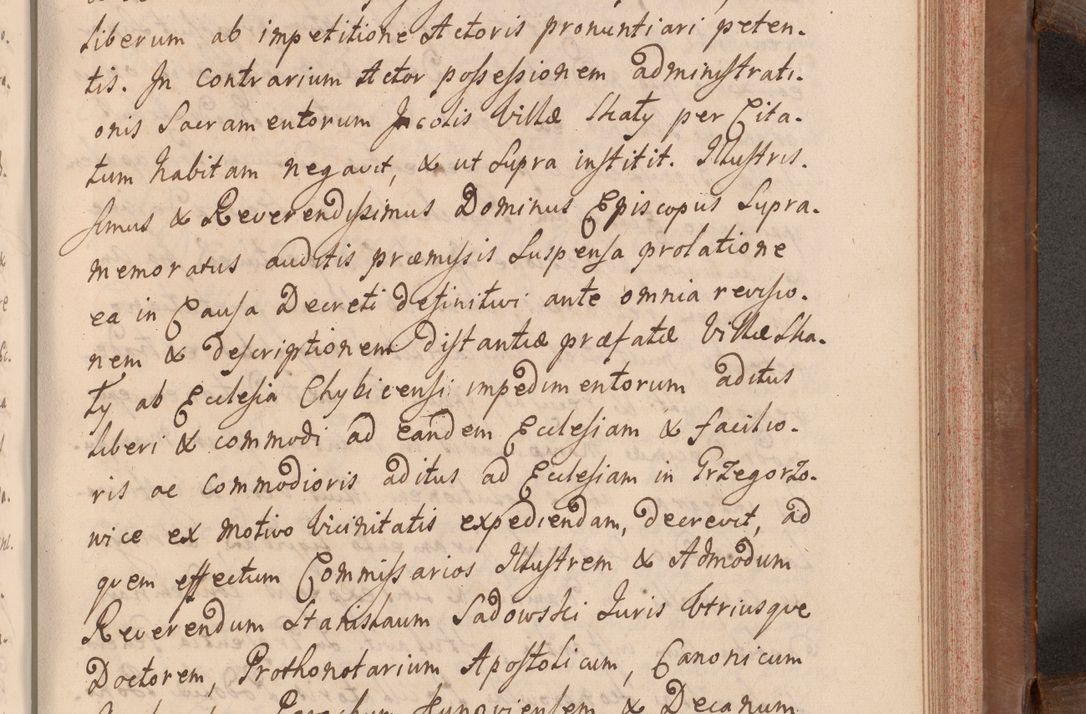 liberum ab impetitione Actoris pronuntiari peten-
tis. In contrarium Actor possessionem administrati-
onis Sacramentorum Incolis Villæ Skaty per Cita-
tum habitam negavit, & ut Supra institit. Illustris-
simus & Reverendissimus Dominus Episcopus Supra-
memoratus auditis præmissis Suspensa prolatione
ea in Causa Decreti definitivi ante omnia revisio-
nem & descriptionem distantiæ præfatæ Villæ Ska-
ty ab Ecclesia Chybicensi impedimentorum aditus
liberi & commodi ad eandem Ecclesiam & facilio-
ris ac Commodioris aditus ad Ecclesiam in Grzegorzo-
wice ex motivo Vicinitatis expediendam, decrevit, ad
quem effectum Commissarios Illustrem & Admodum
Reverendum Stanislaum Sadowski Juris Utriusque
Doctorem, Prothonotarium Apostolicum, Canonicum
& Decanum